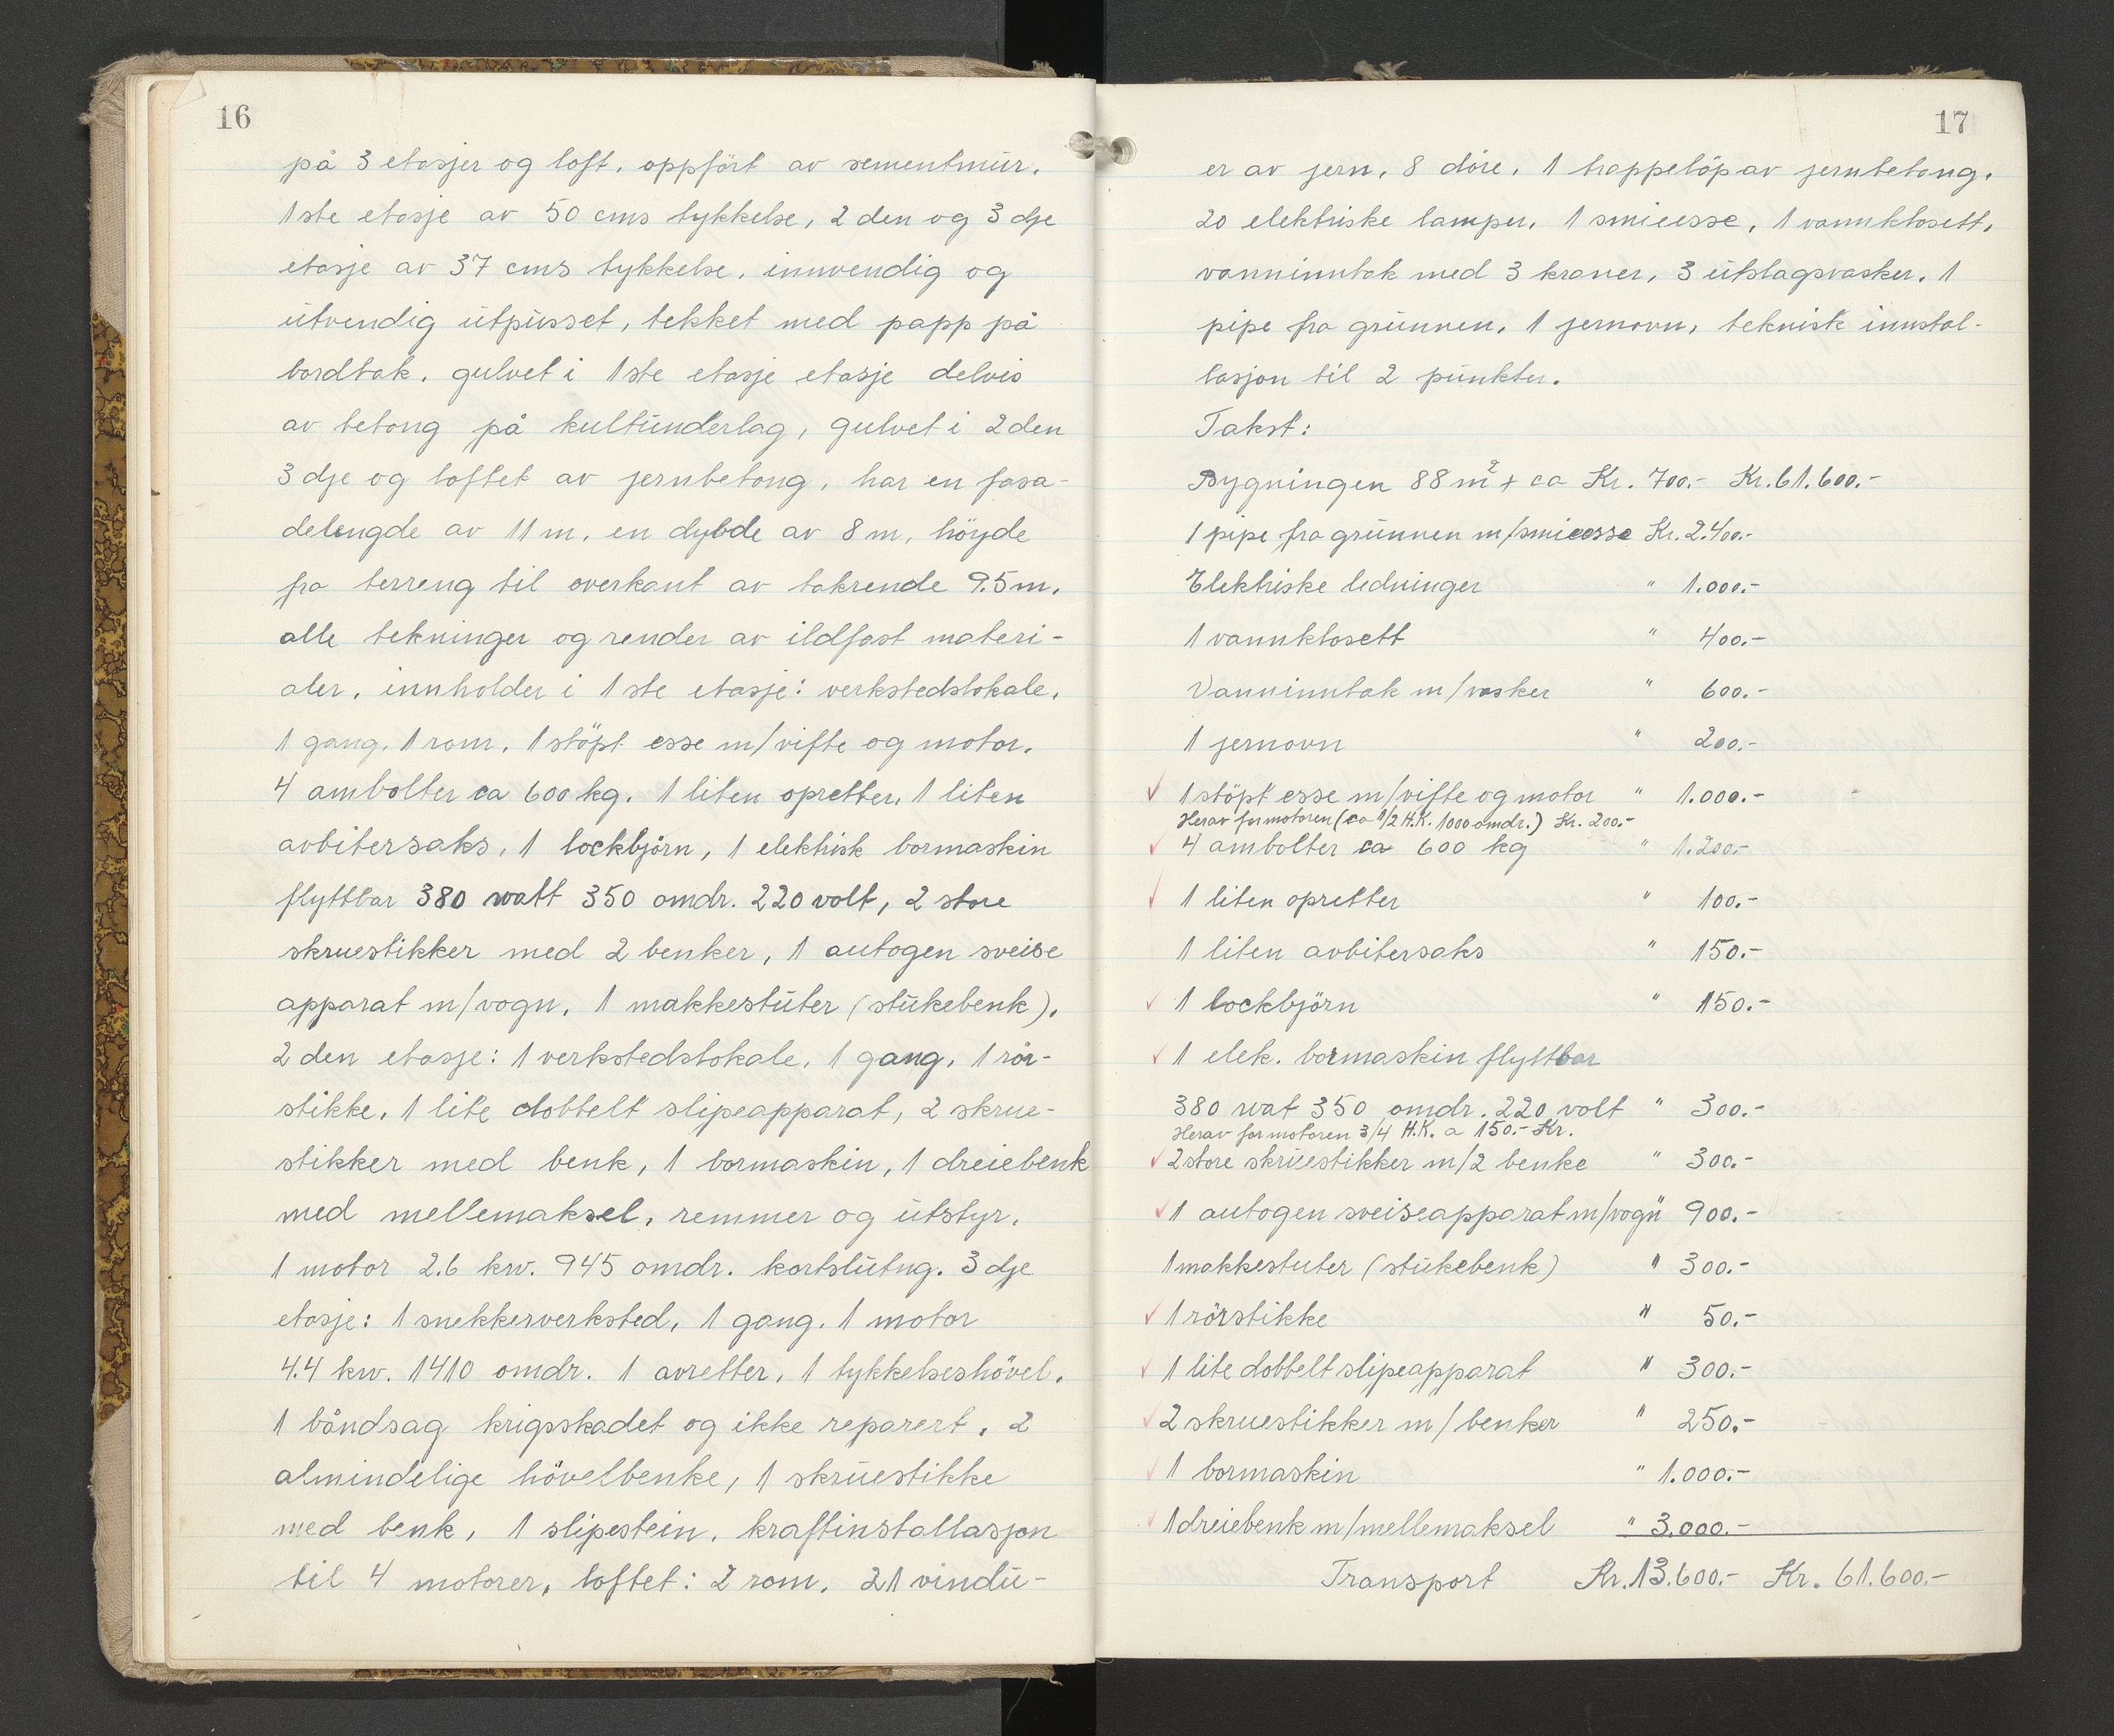 16
på 3 etasjer og loft, oppfört av sementmur,
1ste etasje av 50 cms tykkelse, 2 den og 3 dje
etasje av 37 cms tykkelse, innvendig og
utvendig utpusset, tekket med papp på
bordtak, gulvet i 1ste etasje etasje delvis
av betong på kultunderlag, gulvet i 2 den
3 dje og loftet av jernbetong, har en fasa-
delengde av 11 m, en dybde av 8 m, höyde
fra terreng til overkant av takrende 9.5 m,
alle tekninger og render av ildfast materi-
aler, innholder i 1 ste etasje: verkstedslokale,
1 gang, 1 rom, 1 stöpt esse m/vifte og motor,
4 ambolter ca 600 kg, 1 liten opretter, 1 liten
avbitersaks, 1 lockbjörn, 1 elektrisk bormaskin
flyttbar 380 watt 350 omdr. 220 volt, 2 store
skruestikker med 2 benker, 1 autogen sveise
apparat m/vogn, 1 makkestuter (stukebenk),
2 den etasje: 1 verkstedslokale, 1 gang, 1 rör-
stikke, 1 lite dobbelt slipeapparat, 2 skrue-
stikker med benk, 1 bormaskin, 1 dreiebenk
med mellemaksel, remmer og utstyr,
1 motor 2.6 kw. 945 omdr. kortslutng. 3 dje
etasje: 1 snekkerverksted, 1 gang, 1 motor
4.4 kw. 1410 omdr. 1 avretter, 1 tykkelseshövel,
1 båndsag krigsskadet og ikke reparert, 2
almindelige hövelbenke, 1 skruestikke
med benk, 1 slipestein, kraftinstallasjon
til 4 motorer, loftet: 2 rom, 21 vindu-
17
er av jern, 8 döre, 1 trappelöp av jernbetong,
20 elektriske lamper, 1 smieesse, 1 vannklosett,
vanninntak med 3 kraner, 3 utslagsvasker, 1
pipe fra grunnen, 1 jernovn, teknisk innstal-
lasjon til 2 punkter.
Takst:
Bygningen 88 m² + ca Kr. 700.- Kr. 61.600.-
1 pipe fra grunnen m/smieesse Kr. 2.400.-
Elektriske ledninger " 1.000.-
1 vannklosett " 400.-
Vanninntak m/vasker " 600.-
1 jernovn " 200.-
✓ 1 stöpt esse m/vifte og motor " 1.000.-
Herav for motoren (ca 1/2 H.K. 1000 omdr.) Kr. 200.-
✓ 4 ambolter ca 600 kg " 1.200.-
✓ 1 liten opretter " 100.-
1 liten avbitersaks " 150.-
✓ 1 lockbjörn " 150.-
✓ 1 elek. bormaskin flyttbar
380 wat 350 omdr. 220 volt " 300.-
Herav for motoren 3/4 H.K. a 150.- Kr.
✓ 2 store skruestikker m/2 benke " 300.-
✓ 1 autogen sveiseapparat m/vogn " 900.-
1 makkestuter (stukebenk) " 300.-
✓ 1 rörstikke " 50.-
✓ 1 lite dobbelt slipeapparat " 300.-
✓ 2 skruestikker m/benker " 250.-
✓ 1 bormaskin " 1.000.-
✓ 1 dreiebenk m/mellemaksel " 3.000.-
Transport Kr. 13.600.- Kr. 61.600.-